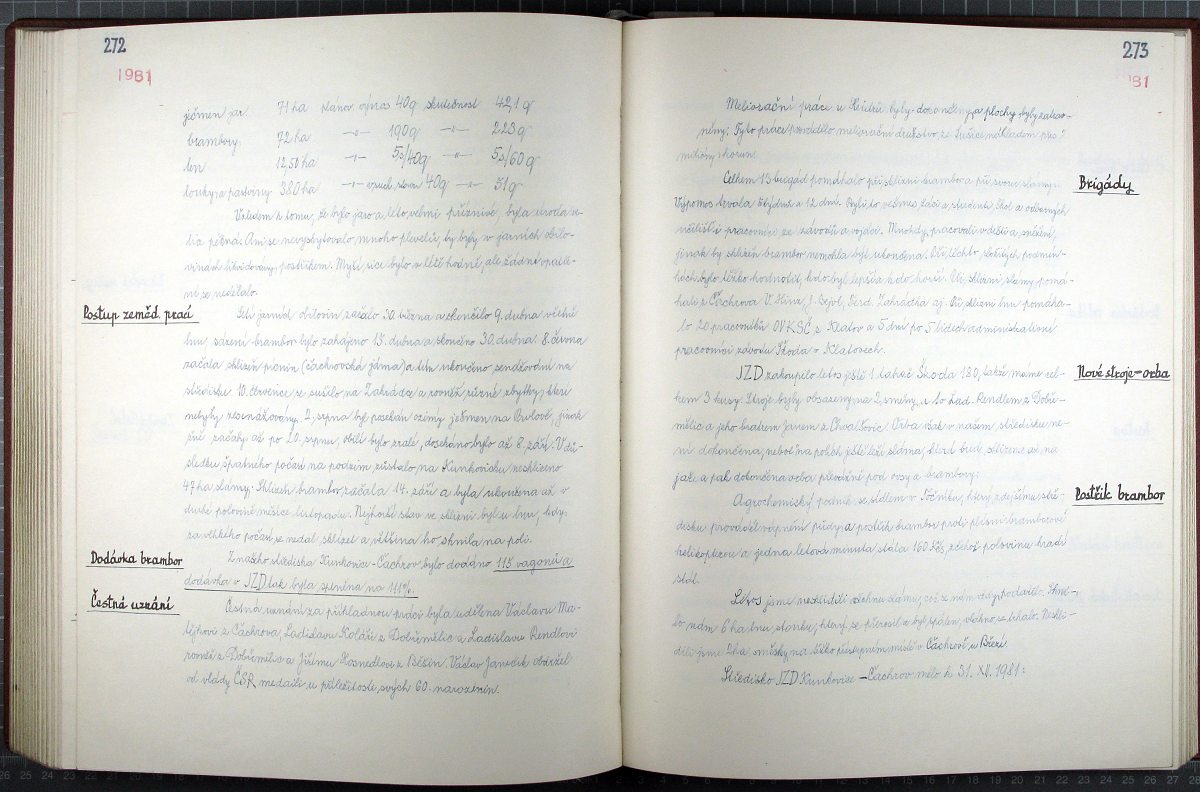 272
1981
ječmen jar. 71 ha plánov. výnos 40q skutečnost 42,1 q
brambory 72 ha -"- 190q -"- 223q
len 12,50 ha -"- 5s/40q -"- 5s/60 q
louky a pastviny 380 ha -"- v such. stavu 40q -"- 51q
Vzhledem k tomu, že bylo jaro a léto velmi příznivé, byla úroda ve-
lice pěkná. Ani se nevyskytovalo mnoho plevelů, by byly v jarních obilo-
vinách likvidovány postřikem. Myší sice bylo v létě hodně, ale žádné opatře-
ní se nedělalo.
Postup zeměd. prací
Setí jarních obilovin začalo 30. března a skončilo 9. dubna včetně
lnu, sázení brambor bylo zahájeno 13. dubna a skončeno 30. dubna. 8. června
začala sklizeň pícnin (čachrovská jáma) a tím ukončeno senážování na
středisku. 10. července se sušilo na Zahrádce a rovněž různé zbytky, které
nebyly zesenážovány. 2. srpna byl posekán ozimý ječmen na Bulově, jinak
žně začaly až po 20. srpnu, obilí bylo zralé, dosekáno bylo až 8. září. V dů-
sledku špatného počasí na podzim zůstalo na Kunkovicku nesklizeno
47 ha slámy. Sklizeň brambor začala 14. září a byla ukončena až v
druhé polovině měsíce listopadu. Nejhorší stav ve sklizni byl u lnu, kdy
za vlhkého počasí se nedal sklízet a většina ho shnila na poli.
Dodávka brambor
Z našeho střediska Kunkovice-Čachrov bylo dodáno 115 vagonů a
dodávka v JZD tak byla splněna na 111%.
Čestná uznání
Čestná uznání za příkladnou práci byla udělena Václavu Ma-
tějkovi z Čachrova, Ladislavu Koláři z Dobřemělic a Ladislavu Rendlovi
rovněž z Dobřemělic a Jiřímu Hosnedlovi z Běšin. Václav Janeček obdržel
od vlády ČSR medaili u příležitosti svých 60. narozenin.
273
81
Meliorační práce u Hůrů byly dokončeny a plochy byly zatrav-
něny. Tyto práce provádělo meliorační družstvo ze Sušice nákladem přes 2
milióny korun.
Brigády
Celkem 13 brigád pomáhalo při sklizni brambor a při svozu slámy.
Výpomoc trvala 5 týdnů a 12 dní. Byli to většinou žáci a studenti škol a odborných
učilišť i pracovníci ze závodů a vojáci. Mnohdy pracovali v dešti a sněžení,
jinak by sklizeň brambor nemohla být ukončena. Při těchto složitých podmín-
kách bylo těžko hodnotit, kdo byl lepší a kdo horší. Při sklizni slámy pomá-
hali z Čachrova V. Hůrka, J. Bejvl, Ferd. Zahrádka aj. Při sklizni lnu pomáha-
lo 20 pracovníků OV KSČ z Klatov a 5 dní po 5 lidech administrativní
pracovníci závodu Škoda v Klatovech.
Nové stroje-orba
JZD zakoupilo letos ještě 1 tahač Škoda 180, takže máme cel-
kem 3 kusy. Stroje byly obsazeny na 2 směny, a to Lad. Rendlem z Dobř-
mělic a jeho bratrem Janem z Chvalšovic. Orba však v našem středisku ne-
ní dokončena, neboť na polích ještě leží sláma, která bude sklizena až na
jaře a pak dokončena orba převážně pod ovsy a brambory.
Postřik brambor
Agrochemický podnik se sídlem v Točníku, který zdejšímu stře-
disku prováděl vápnění půdy a postřik brambor proti plísni bramborové
helikoptérou a jedna letová minuta stála 160 Kčs, z čehož polovinu hradí
stát.
Letos jsme nesklidili všechnu slámu, což se nám dosud podařilo. Shni-
lo nám 6 ha lnu, stonky, který se přerosil a byl spálen, všechno se trhalo. Neskli-
dili jsme 2 ha směsky na těžko přístupném místě v Čachrově u Březí.
Středisko JZD Kunkovice - Čachrov mělo k 31. XII. 1981: